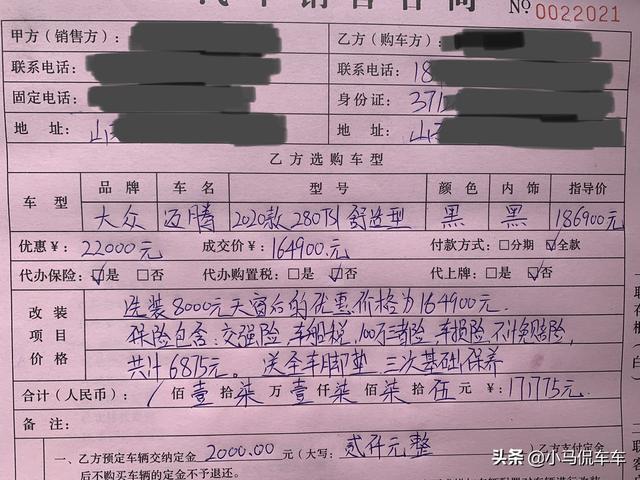 汽车销售合同 No 0022021
甲方(销售方): 乙方(购车方):
联系电话: 联系电话: 18
固定电话: 身份证: 371
地 址: 山 地 址: 山
乙方选购车型
车 型 品 牌 车 名 型 号 颜 色 内 饰 指导价
大众 迈腾 2020款 280TSI 舒适型 黑 黑 186900元
优惠¥: 22000元 成交价¥: 164900元 付款方式: □分期 ☑全款
代办保险: ☑是 □否 代办购置税: □是 ☑否 代上牌: □是 ☑否
改 装 选装8000元天窗后的优惠价格为164900元.
项 目 保险包含: 交强险, 车船税, 100万三者险, 车损险, 不计免赔险,
价 格 共计6875元。送全车脚垫, 三次基础保养
合计(人民币): 佰 壹 拾 柒 万 壹 仟 柒 佰 柒 拾 伍 元 ¥: 171775元
备注:
一、乙方预定车辆交纳定金 2000.00 元(大写: 贰仟元整 )乙方支付定金
后不购买车辆的定金不予退还。
头条 @小马侃车车